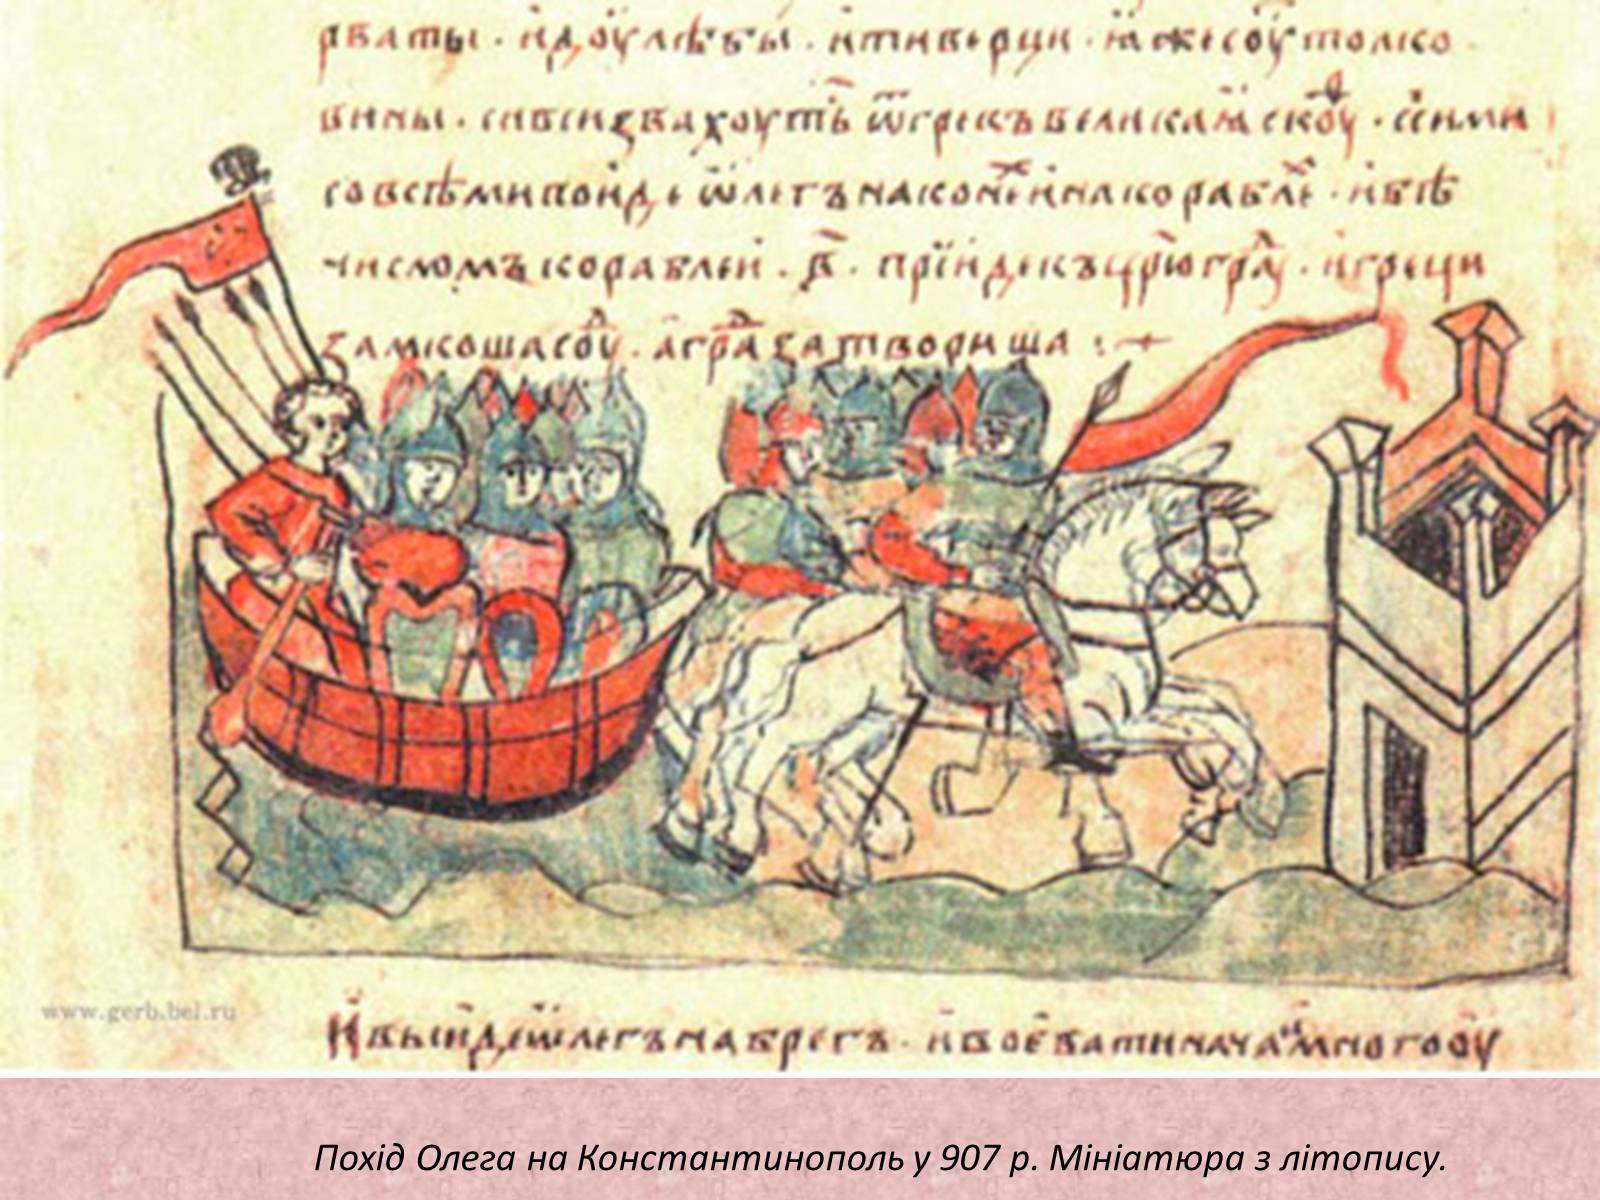 рваты · и҆доулѣбы · и҆тиверци · ꙗ҆жесоутолко
вины · сивсизвахоуть ѿгрекъвеликаѧскоуѳ · ссими
совсѣмипоиде ѡ҆легънаконеⷯинакораблеⷯ · и҆бѣ
числомъкораблеи · в҃ · прїидекъцр҃югра · и҆греци
замкошасоуⷣ · а҆граⷣзатвориша :·
И҆выидеѡ҆легънабрегъ · и҆воеватиначаⷩ҇многооу
www.gerb.bel.ru
Похід Олега на Константинополь у 907 р. Мініатюра з літопису.